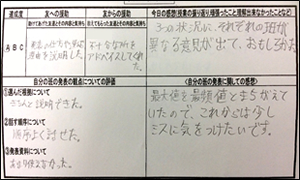 達成度
友への援助
友からの援助
今日の感想(授業の振り返り、理解出来なかったことなど)
助けてあげた友達とその内容と気持ち
教えてもらった友達とその内容と気持ち
A B C
理由を説明した。
不十分な所を
アドバイスしてくれた。
3つの状況に、それぞれの班が
異なる意見が出て、おもしろかった。
自分の班の発表の観点についての評価
(自分の班の発表に関しての感想)
①選んだ根拠について
きちんと説明できた。
②話す順序について
順序よく話せた。
③発表資料について
あまり使えなかった。
最大値と最頻値とまちがえて
いたので、これからは少し
ミスに気をつけたいです。